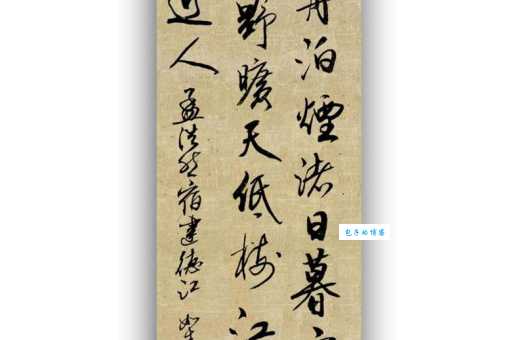 舟泊煙渚日暮
野曠天低樹江
近人
孟浩然宿建德江
包子的博客